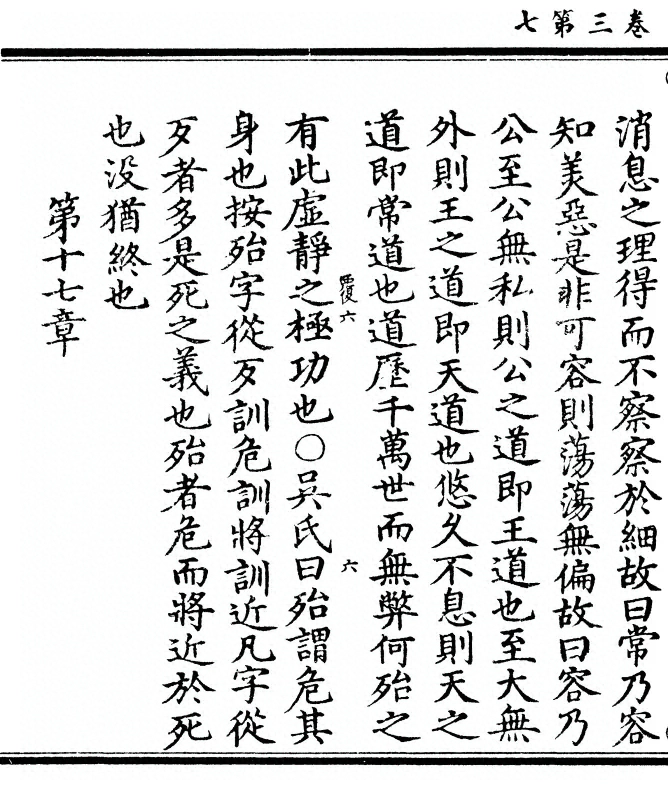 卷三第七
消息之理得而不察察於細故曰常乃容
知美惡是非可容則蕩蕩無偏故曰容乃
公至公無私則公之道即王道也至大無
外則王之道即天道也悠久不息則天之
道即常道也道歷千萬世而無弊何殆之
覆六
六
有此虛靜之極功也〇吳氏曰殆謂危其
身也按殆字從歹訓危訓將訓近凡字從
歹者多是死之義也殆者危而將近於死
也没猶終也
第十七章